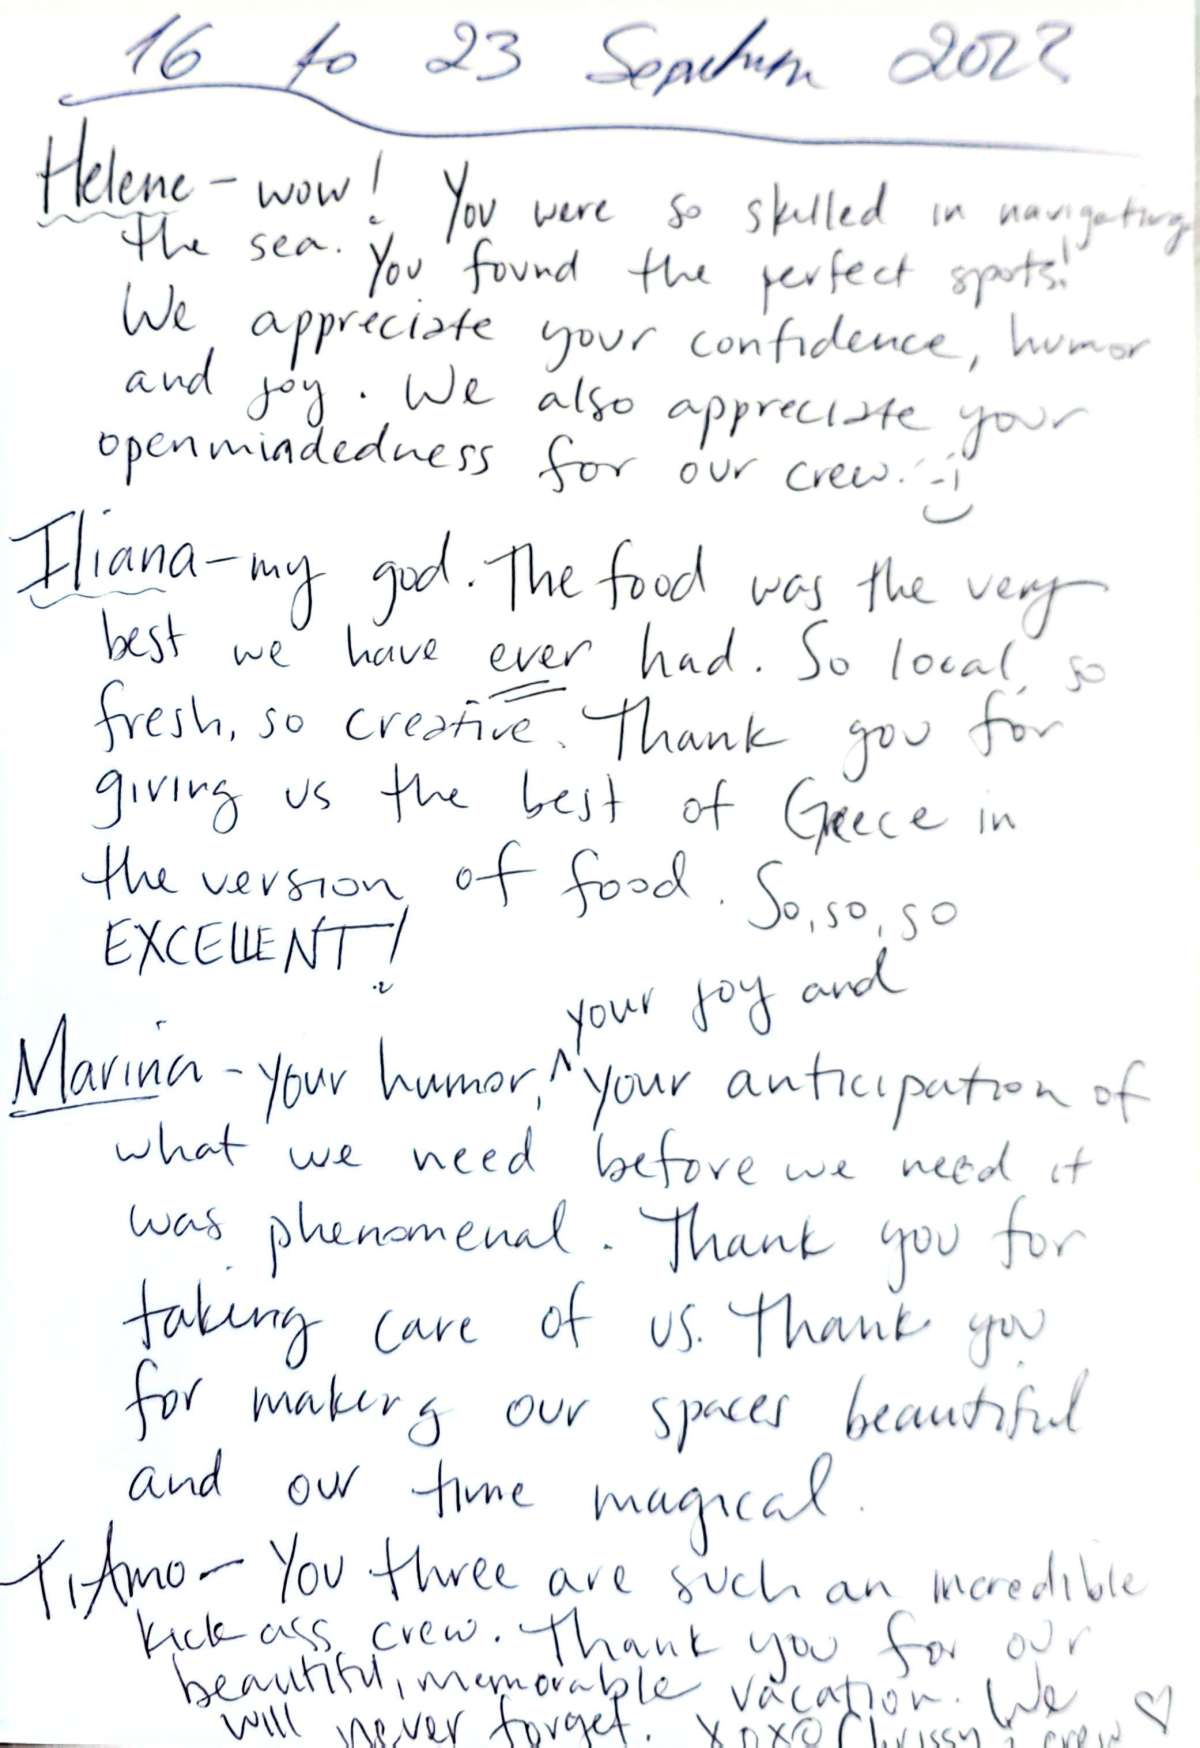 16 to 23 September 2022
Helene - wow! You were so skilled in navigating
the sea. You found the perfect spots!
We appreciate your confidence, humor
and joy. We also appreciate your
openmindedness for our crew. :-)
Iliana - my god. The food was the very
best we have ever had. So local, so
fresh, so creative. Thank you for
giving us the best of Greece in
the version of food. So, so, so
EXCELLENT!
your joy and
Marina - your humor, ^ your anticipation of
what we need before we need it
was phenomenal. Thank you for
taking care of us. Thank you
for making our spaces beautiful
and our time magical.
TiAmo - You three are such an incredible
kick ass crew. Thank you for our
beautiful, memorable vacation. We
will never forget. XOXO Chrissy & crew ♡